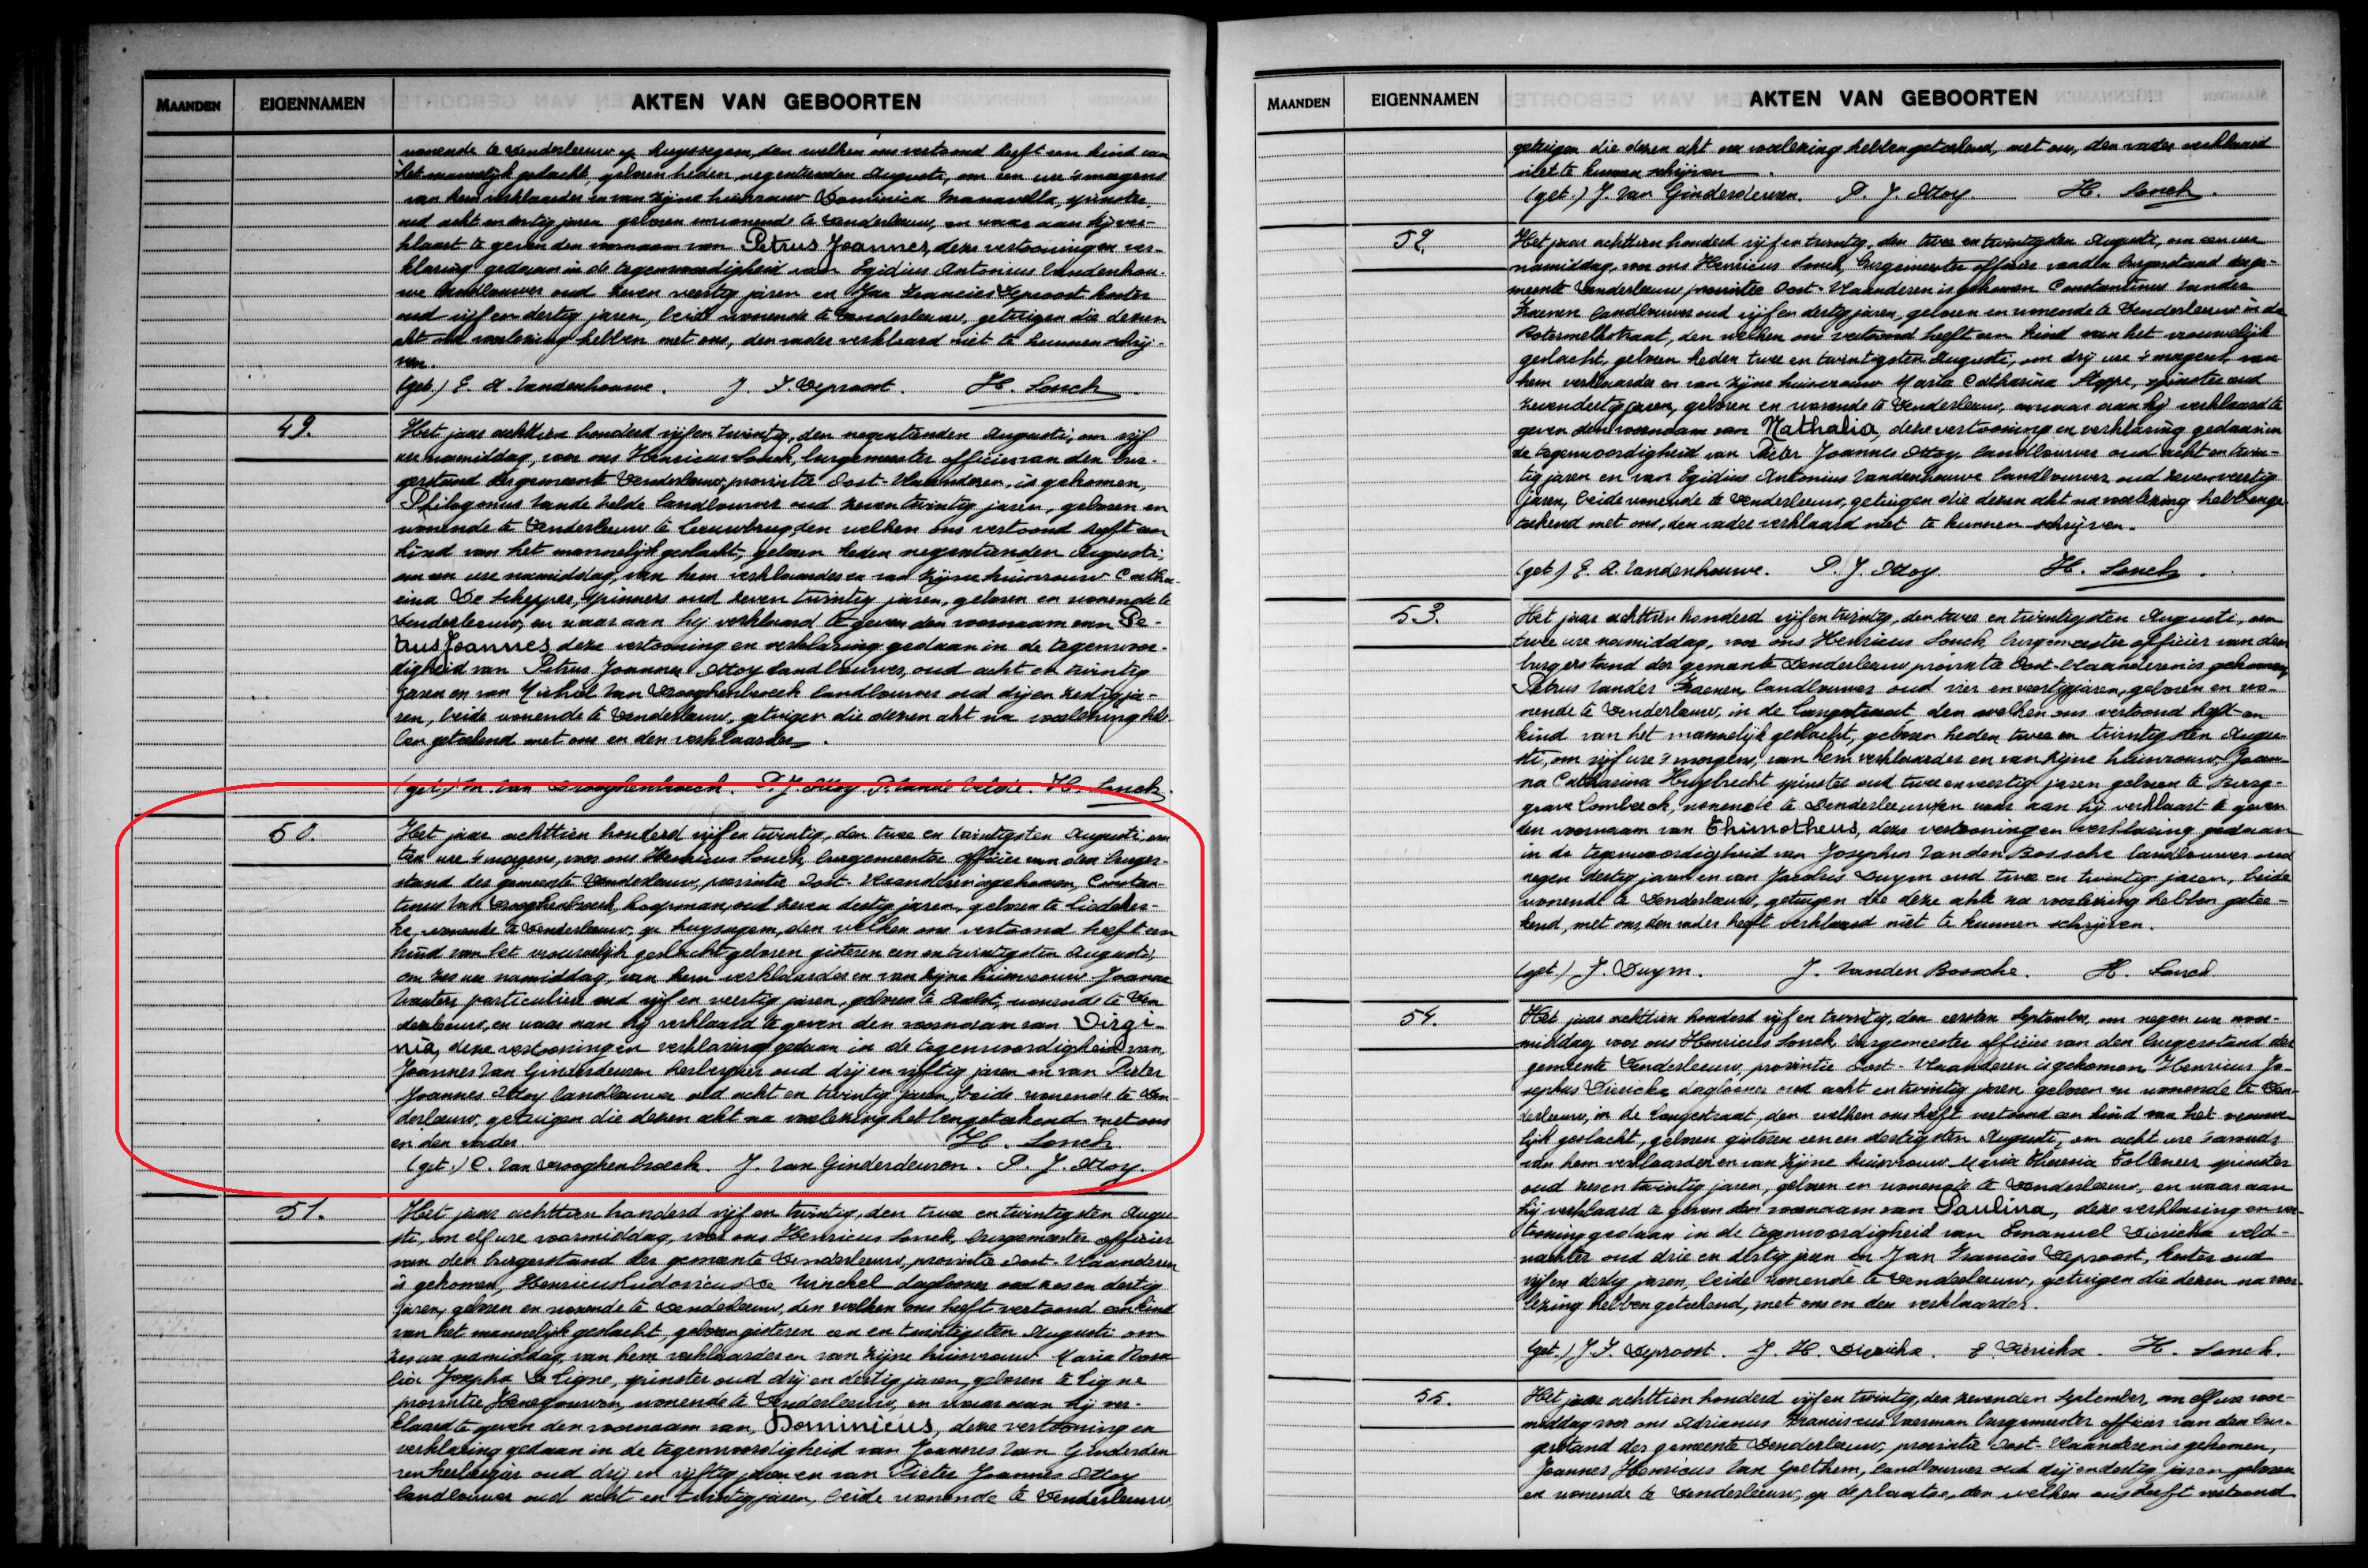 MAANDEN EIGENNAMEN AKTEN VAN GEBOORTEN
wonende te Denderleeuw op huyssegem, den welken ons vertoond heeft een kind van
het mannelijk geslacht, geboren heden negentienden Augusti, om een ure 's morgens
van hem verklaarder en van zijne huisvrouw Dominica spinster,
oud acht en dertig jaren geboren en wonende te Denderleeuw, en waar aan hij ver-
klaart te geven den voornaam van Petrus Joannes, deze vertooning en ver-
klaring gedaan in de tegenwoordigheid van Egidius Antonius Vandenhou-
we landbouwer oud zeven veertig jaren en Jan Francies Deproost koster
oud vijf en dertig jaren, beide wonende te Denderleeuw, getuigen die dezen
akt na voorlezing hebben met ons, den vader verklaard niet te kunnen schrij-
ven.
(get.) E. A. Vandenhouwe. J. F. Deproost. H. Sonck.
49. Het jaar achttien honderd vijf en twintig, den negentienden Augusti, om vijf
ure namiddag, voor ons Henricus Sonck, burgemeester officier van den bur-
gerstand der gemeente Denderleeuw, provintie Oost-Vlaanderen, is gekomen,
Philogonus Vande Velde landbouwer oud zeven twintig jaren, geboren en
wonende te Denderleeuw te Leeuwbrug, den welken ons vertoond heeft een
kind van het mannelijk geslacht, geboren heden negentienden Augusti,
om een ure namiddag, van hem verklaarder en van zijne huisvrouw Catha-
rina De Schepper, spinners oud zeven twintig jaren, geboren en wonende te
Denderleeuw, en waar aan hij verklaard te geven den voornaam van Pe-
trus Joannes, deze vertooning en verklaring gedaan in de tegenwoor-
digheid van Petrus Joannes Ottoy landbouwer, oud acht en twintig
jaren en van Michiel Van Drooghenbroeck landbouwer oud dij en zestig ja-
ren, beide wonende te Denderleeuw, getuigen die dezen akt na voorlezing heb-
ben geteekend met ons en den verklaarder.
(get.) M. Van Drooghenbroeck. P. J. Ottoy. P. Vande Velde. H. Sonck.
50. Het jaar achttien honderd vijf en twintig, den twee en twintigsten Augusti, om
tien ure 's morgens, voor ons Henricus Sonck, burgemeester officier van den burger-
stand der gemeente Denderleeuw, provintie Oost-Vlaanderen is gekomen, Constan-
tinus Van Drooghenbroeck, koopman, oud zeven dertig jaren, geboren te Liedeker-
ke, wonende te Denderleeuw, op huyssegem, den welken ons vertoond heeft een
kind van het vrouwelijk geslacht geboren gisteren een en twintigsten Augusti,
om zes ure namiddag, van hem verklaarder en van zijne huisvrouw Joanna
Wauters particuliere oud vijf en veertig jaren, geboren te Aalst, wonende te Den-
derleeuw, en waar aan hij verklaard te geven den voornaam van Virgi-
nia, deze vertooning en verklaring gedaan in de tegenwoordigheid van,
Joannes Van Ginderdeuren herbergier oud drij en vijftig jaren en van Pieter
Joannes Ottoy landbouwer oud acht en twintig jaren, beide wonende te Den-
derleeuw, getuigen die dezen akt na voorlezing hebben geteekend met ons
en den vader. H. Sonck.
(get.) C. Van Drooghenbroeck. J. Van Ginderdeuren. P. J. Ottoy.
51. Het jaar achttien honderd vijf en twintig, den twee en twintigsten Augu-
sti, om elf ure voormiddag, voor ons Henricus Sonck, burgemeester officier
van den burgerstand der gemeente Denderleeuw, provintie Oost-Vlaanderen
is gekomen, Henricus Ludovicus De Winckel dagloner oud zes en dertig
jaren, geboren en wonende te Denderleeuw, den welken ons heeft vertoond een kind
van het mannelijk geslacht, geboren gisteren een en twintigsten Augusti om
zes ure namiddag, van hem verklaarder en van zijne huisvrouw Maria Rosa-
lia Josepha De Ligne, spinster oud drij en dertig jaren, geboren te Ligne
provintie Henegouwen, wonende te Denderleeuw, en waar aan hij ver-
klaard te geven den voornaam van, Dominicus, deze vertooning en
verklaring gedaan in de tegenwoordigheid van Joannes Van Ginderdeu-
ren herbergier oud drij en vijftig jaren en van Pieter Joannes Ottoy
landbouwer oud acht en twintig jaren, beide wonende te Denderleeuw
MAANDEN EIGENNAMEN AKTEN VAN GEBOORTEN
getuigen die dezen akt na voorlezing hebben geteekend, met ons, den vader verklaard
niet te kunnen schrijven.
(get.) J. Van Ginderdeuren. P. J. Ottoy. H. Sonck.
52. Het jaar achttien honderd vijf en twintig, den twee en twintigsten Augusti, om een ure
namiddag, voor ons Henricus Sonck, burgemeester officier van den burgerstand der ge-
meente Denderleeuw provintie Oost-Vlaanderen is gekomen Constantinus Vander
Zoenen landbouwer oud vijf en dertig jaren, geboren en wonende te Denderleeuw in de
Botermelkstraat, den welken ons vertoond heeft een kind van het vrouwelijk
geslacht, geboren heden twee en twintigsten Augusti, om drij ure 's morgens, van
hem verklaarder en van zijne huisvrouw Maria Catharina Stoppe, spinster oud
zevendertig jaren, geboren en wonende te Denderleeuw, en waar aan hij verklaard te
geven den voornaam van Nathalia, deze vertooning en verklaring gedaan in
de tegenwoordigheid van Pieter Joannes Ottoy landbouwer oud acht en twin-
tig jaren en van Egidius Antonius Vandenhouwe landbouwer oud zeven veertig
jaren, beide wonende te Denderleeuw, getuigen die dezen akt na voorlezing hebben ge-
teekend met ons, den vader verklaard niet te kunnen schrijven.
(get.) E. A. Vandenhouwe. P. J. Ottoy. H. Sonck.
53. Het jaar achttien honderd vijf en twintig, den twee en twintigsten Augusti, om
twee ure namiddag, voor ons Henricus Sonck, burgemeester officier van den
burgerstand der gemeente Denderleeuw provintie Oost-Vlaanderen is gekomen,
Petrus Vander Zoenen, landbouwer oud vier en veertig jaren, geboren en wo-
nende te Denderleeuw, in de langestraat, den welken ons vertoond heeft een
kind van het mannelijk geslacht, geboren heden twee en twintigsten Augu-
sti, om vijf ure 's morgens, van hem verklaarder en van zijne huisvrouw Joan-
na Catharina Huybrecht spinster oud twee en veertig jaren geboren te Burg-
grave Lombeeck, wonende te Denderleeuw, en waar aan hij verklaart te geven
den voornaam van Thimotheus, deze vertooning en verklaring gedaan
in de tegenwoordigheid van Josephus Van den Bossche landbouwer oud
negen dertig jaren en van Jacobus Duym oud twee en twintig jaren, beide
wonende te Denderleeuw, getuigen die deze akte na voorlezing hebben getee-
kend, met ons, den vader heeft verklaard niet te kunnen schrijven.
(get.) J. Duym. J. Vanden Bossche. H. Sonck
54. Het jaar achttien honderd vijf en twintig, den eersten September, om negen ure voor-
middag voor ons Henricus Sonck, burgemeester officier van den burgerstand der
gemeente Denderleeuw, provintie Oost-Vlaanderen is gekomen Henricus Jo-
sephus Diericks dagloner oud acht en twintig jaren, geboren en wonende te Den-
derleeuw, in de langestraat, den welken ons heeft vertoond een kind van het vrouwe-
lijk geslacht, geboren gisteren een en dertigsten Augusti, om acht ure 's avonds
van hem verklaarder en van zijne huisvrouw Maria Theresia spinster
oud zes en twintig jaren, geboren en wonende te Denderleeuw, en waar aan
hij verklaard te geven den voornaam van Paulina, deze verklaring en ver-
tooning gedaan in de tegenwoordigheid van Emanuel Diericks veld-
wachter oud drie en dertig jaren en Jan Francies Deproost, koster oud
vijf en dertig jaren, beide wonende te Denderleeuw, getuigen die dezen na voor-
lezing hebben geteekend, met ons en den verklaarder.
(get.) J. F. Deproost. J. H. Diericks. E. Diericks. H. Sonck.
55. Het jaar achttien honderd vijf en twintig, den zevenden September, om elf ure voor-
middag voor ons Adrianus Franciscus burgemeester officier van den bur-
gerstand der gemeente Denderleeuw, provintie Oost-Vlaanderen is gekomen,
Joannes Henricus Van Goethem, landbouwer oud drij en dertig jaren geboren
en wonende te Denderleeuw, op de plaatse, den welken ons heeft vertoond